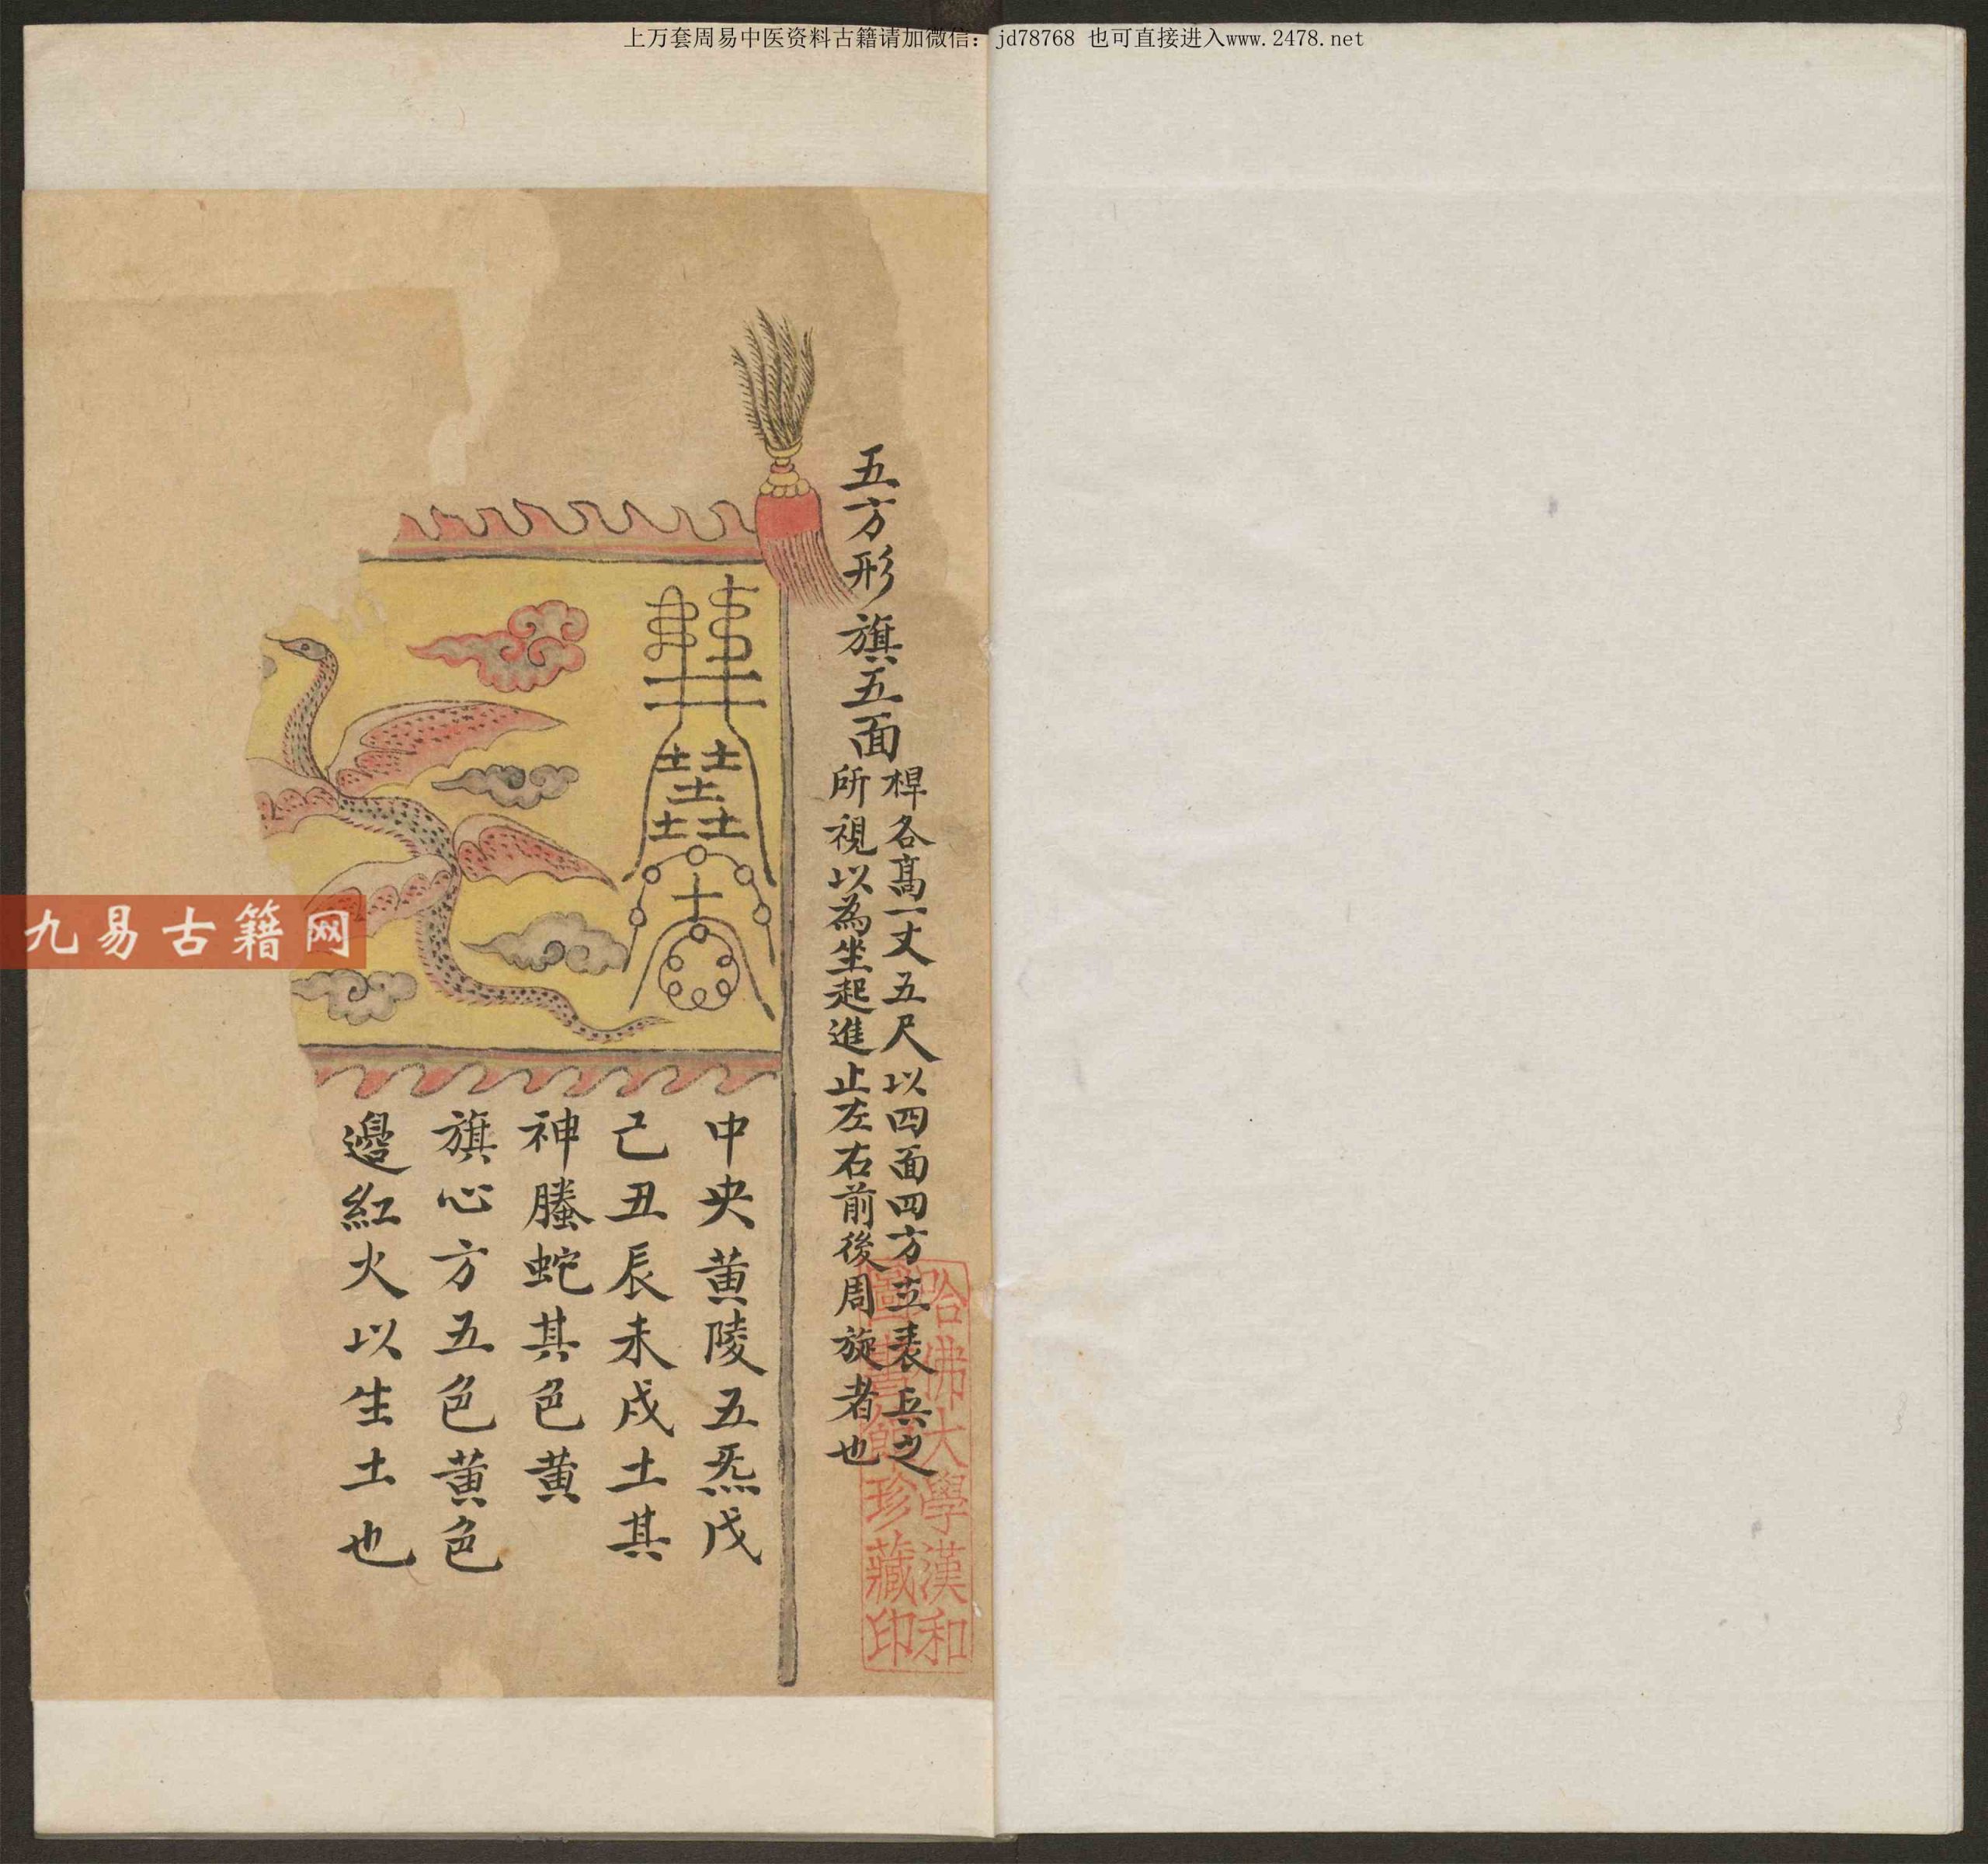 上万套周易中医资料古籍请加微信：jd78768 也可直接进入www.2478.net
五方形旗五面
桿各高一丈五尺以四面四方立表兵之
所視以為坐起進止左右前後周旋者也
土土
土
土土
中央黃陵五炁戊
己丑辰未戌土其
神螣蛇其色黃
旗心方五色黃色
邊紅火以生土也
哈佛大學漢和
圖書館珍藏印
九易古籍网